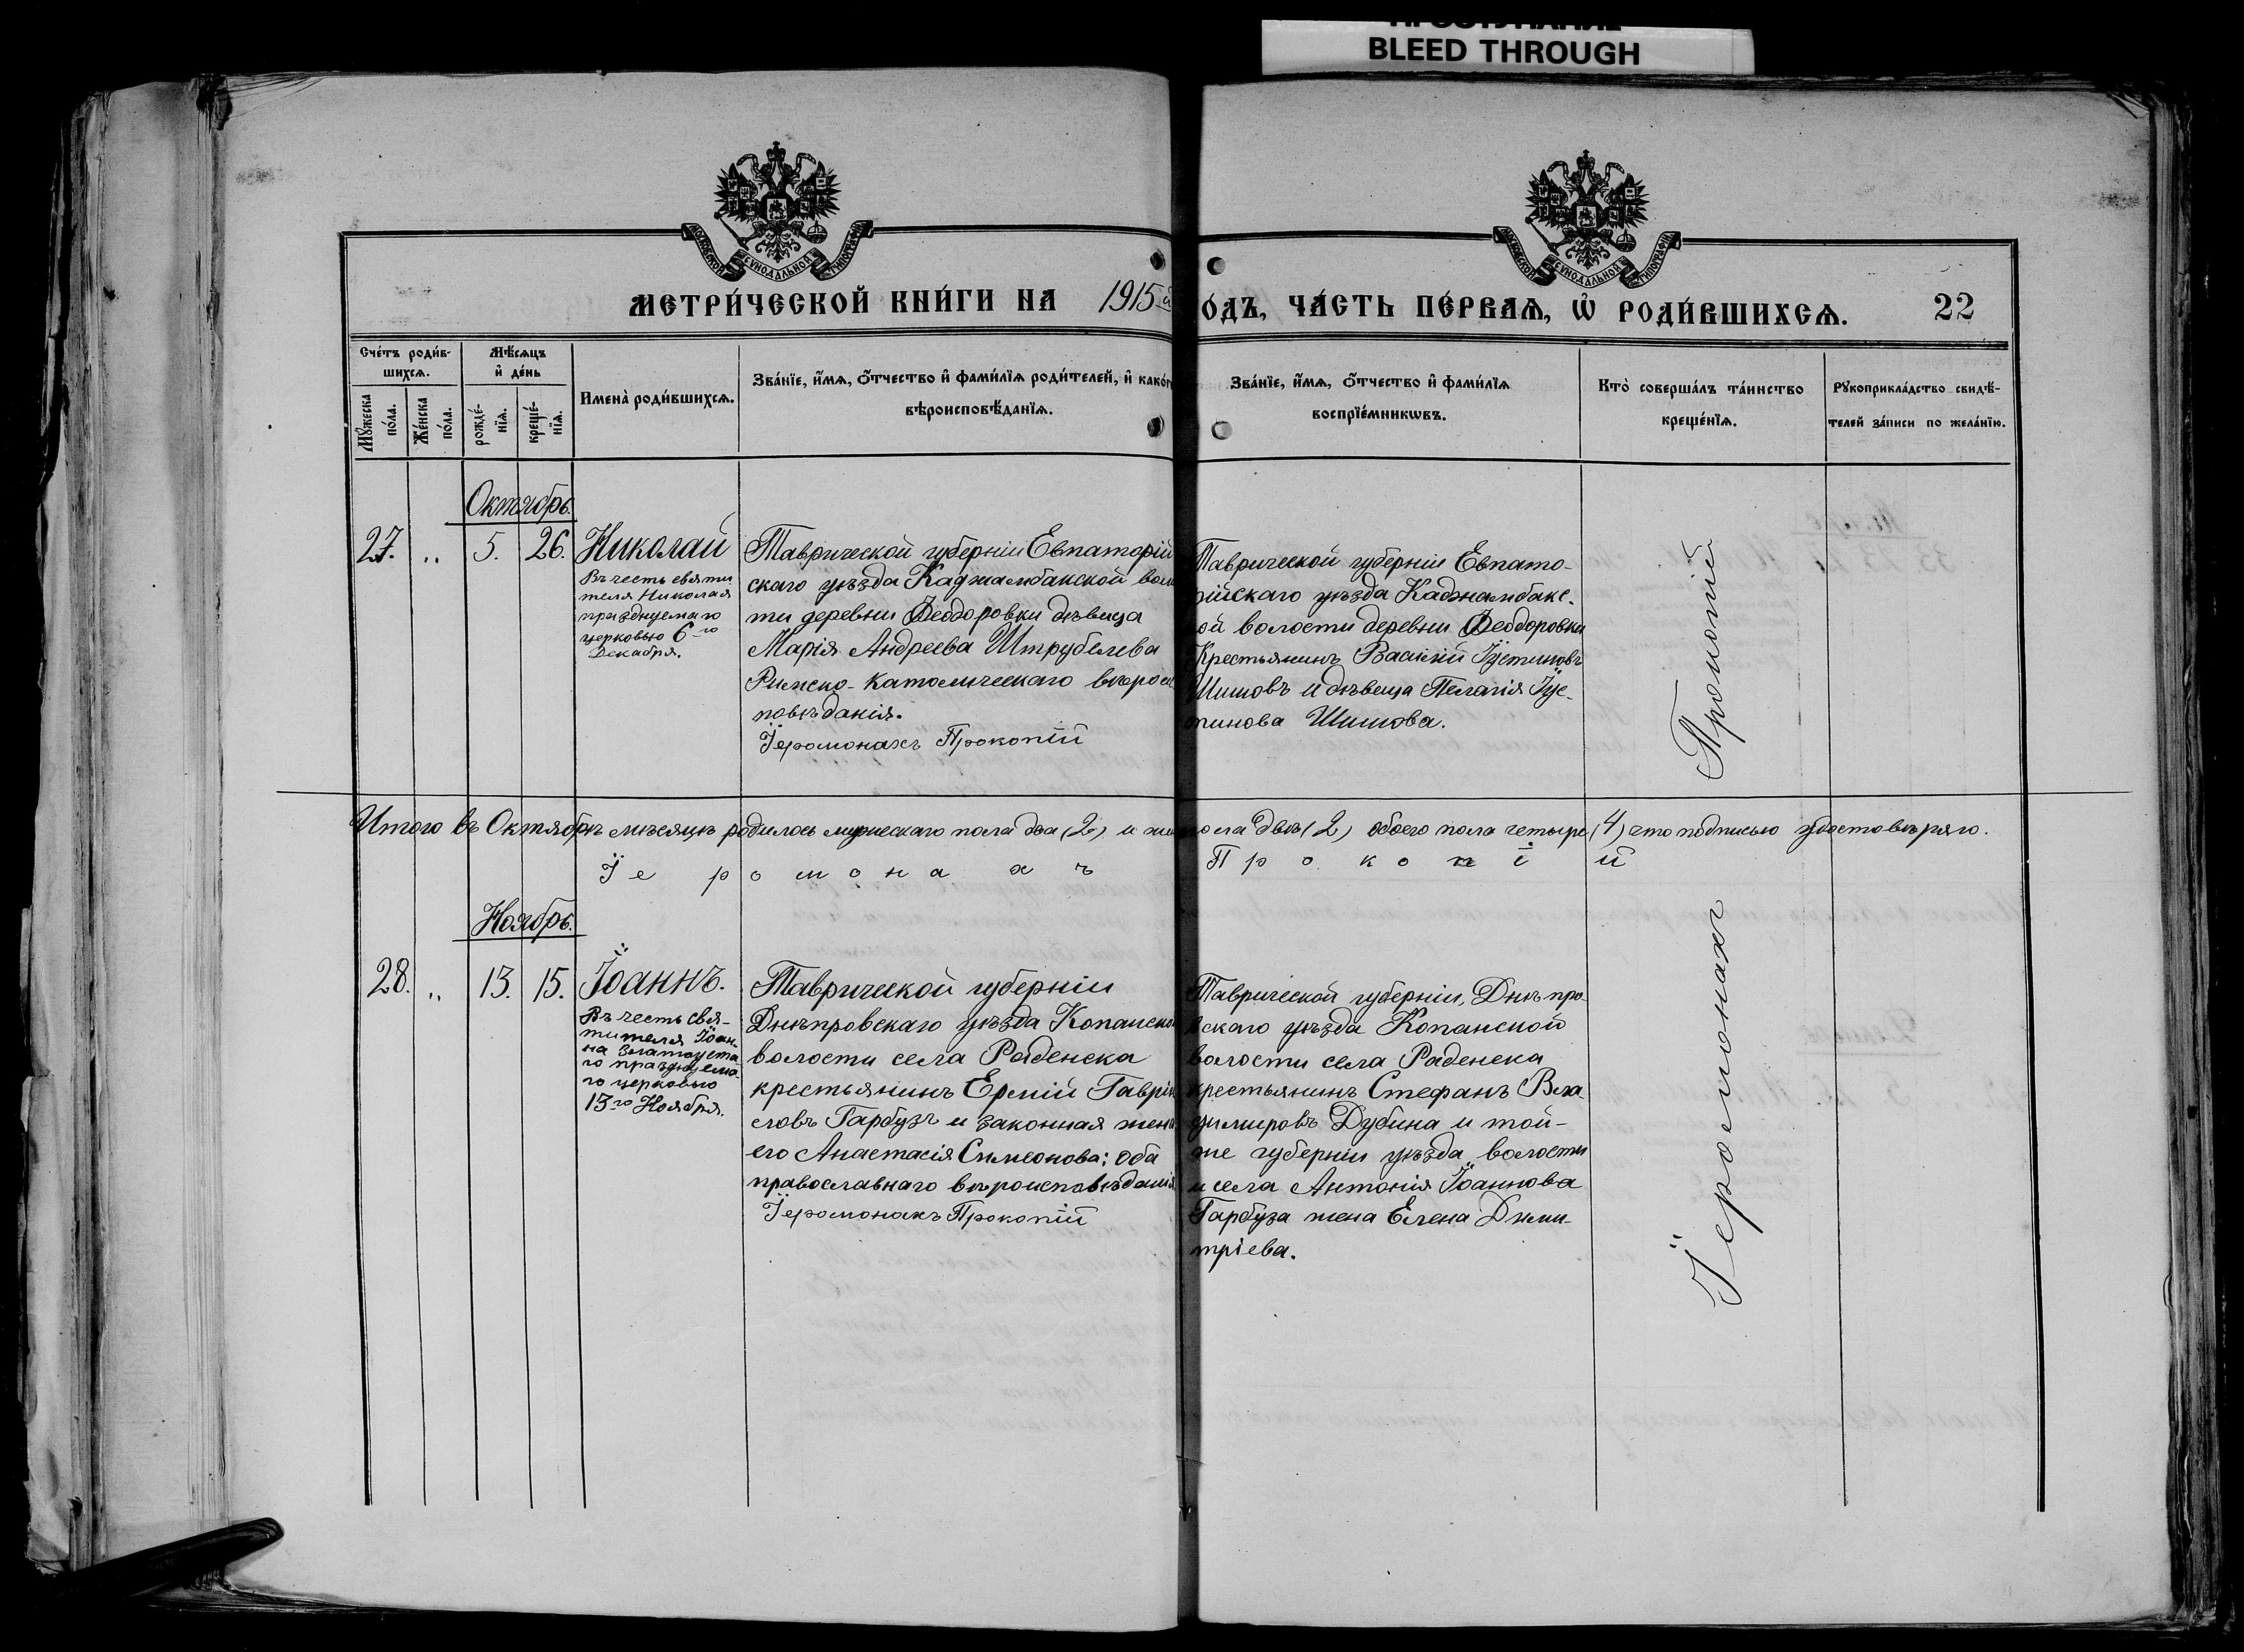 ПРОСТУПАНИЕ
BLEED THROUGH
МОСКОВСКОЙ СѴНОДАЛЬНОЙ ТИПОГРАФІИ
МОСКОВСКОЙ СѴНОДАЛЬНОЙ ТИПОГРАФІИ
МЕТРИ́ЧЕСКОЙ КНИ́ГИ НА 1915й
О́ДЪ, ЧА́СТЬ ПЕ́РВАѦ, Ѡ҆ РОДИ́ВШИХСѦ. 22
Сче́тъ роди́в-
шихсѧ.
Мꙋ́жеска
по́ла.
Же́нска
по́ла.
Мѣ́сѧцъ
и҆ де́нь
рожде́-
нїѧ.
креще́-
нїѧ.
Имена̀ роди́вшихсѧ.
Зва́нїе, и҆́мѧ, ѻ҆́тчество и҆ фами́лїѧ роди́телей, и҆ како́г
вѣроисповѣ́данїѧ.
Зва́нїе, и҆́мѧ, ѻ҆́тчество и҆ фами́лїѧ
воспрїе́мникѡвъ.
Кто̀ соверша́лъ та́инство
креще́нїѧ.
Рꙋкоприкла́дство свидѣ́-
телей за́писи по жела́нїю.
Октябрь.
27. „ 5. 26. Николай
Въ честь святи
теля Николая
празднуемаго
церковью 6-го
Декабря.
Таврической губерніи Евпаторій
скаго уѣзда Каджамбакской вол
ти деревни Ѳеодоровки дѣвица
Марія Андреева Штрубелева
Римско-католическаго вѣроис
повѣданія.
Іеромонахъ Прокопій
Таврической губерніи Евпато-
рійскаго уѣзда Каджамбакс-
ой волости деревни Ѳеодоровки
Крестьянинъ Василій Іустиновъ
Шишовъ и дѣвица Пелагія Іус-
тинова Шишова.
Прокопій
Итого въ Октябрѣ мѣсяцѣ родилось мужескаго пола два (2) и же
пола двѣ (2) обоего пола четыре (4) что подписью удостовѣряю.
Іеромонахъ Прокопій
Ноябрь.
28. „ 13. 15. Іоаннъ.
Въ честь свя-
тителя Іоан-
на Златоуста
го празднуема-
го церковью
13го Ноября.
Таврической губерніи
Днѣпровскаго уѣзда Копанско
волости села Раденска
крестьянинъ Ермій Гаврі
словъ Гарбузъ и законная жена
его Анастасія Симеонова; оба
православнаго вѣроисповѣданія
Іеромонахъ Прокопій
Таврической губерніи, Днѣпро-
вскаго уѣзда Копанской
волости села Раденска
крестьянинъ Стефанъ Вла-
димировъ Дубина и той-
же губерніи уѣзда волости
и села Антонія Іоаннова
Гарбуза жена Елена Дими-
тріева.
Іеромонахъ